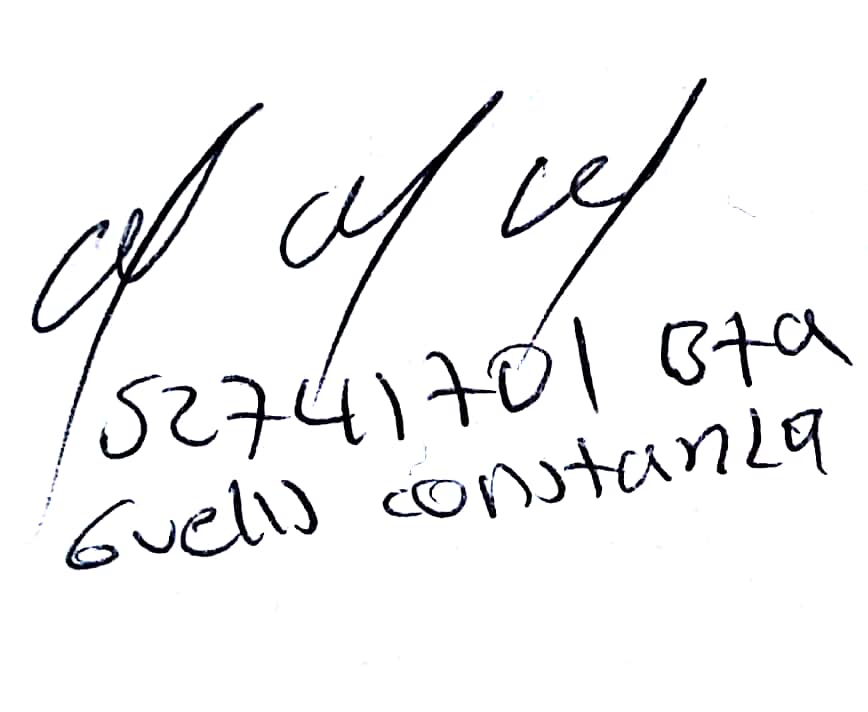 52741701 Bta
Guelis constanza